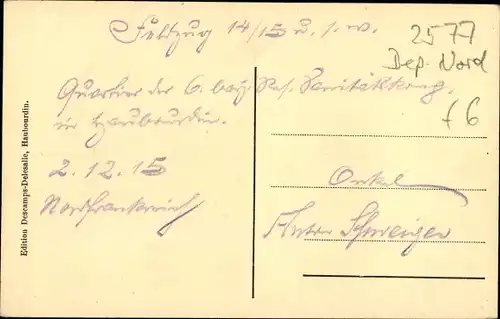 Feldzug 14/15 u. s. w.
2577
Dep. Nord
Quartier der 6. bay. Res. Sanitätskomp.
in Haubourdin.
f6
2.12.15
Nordfrankreich
Onkel
Anton Schweiger
Edition Descamps-Delesalle, Haubourdin.